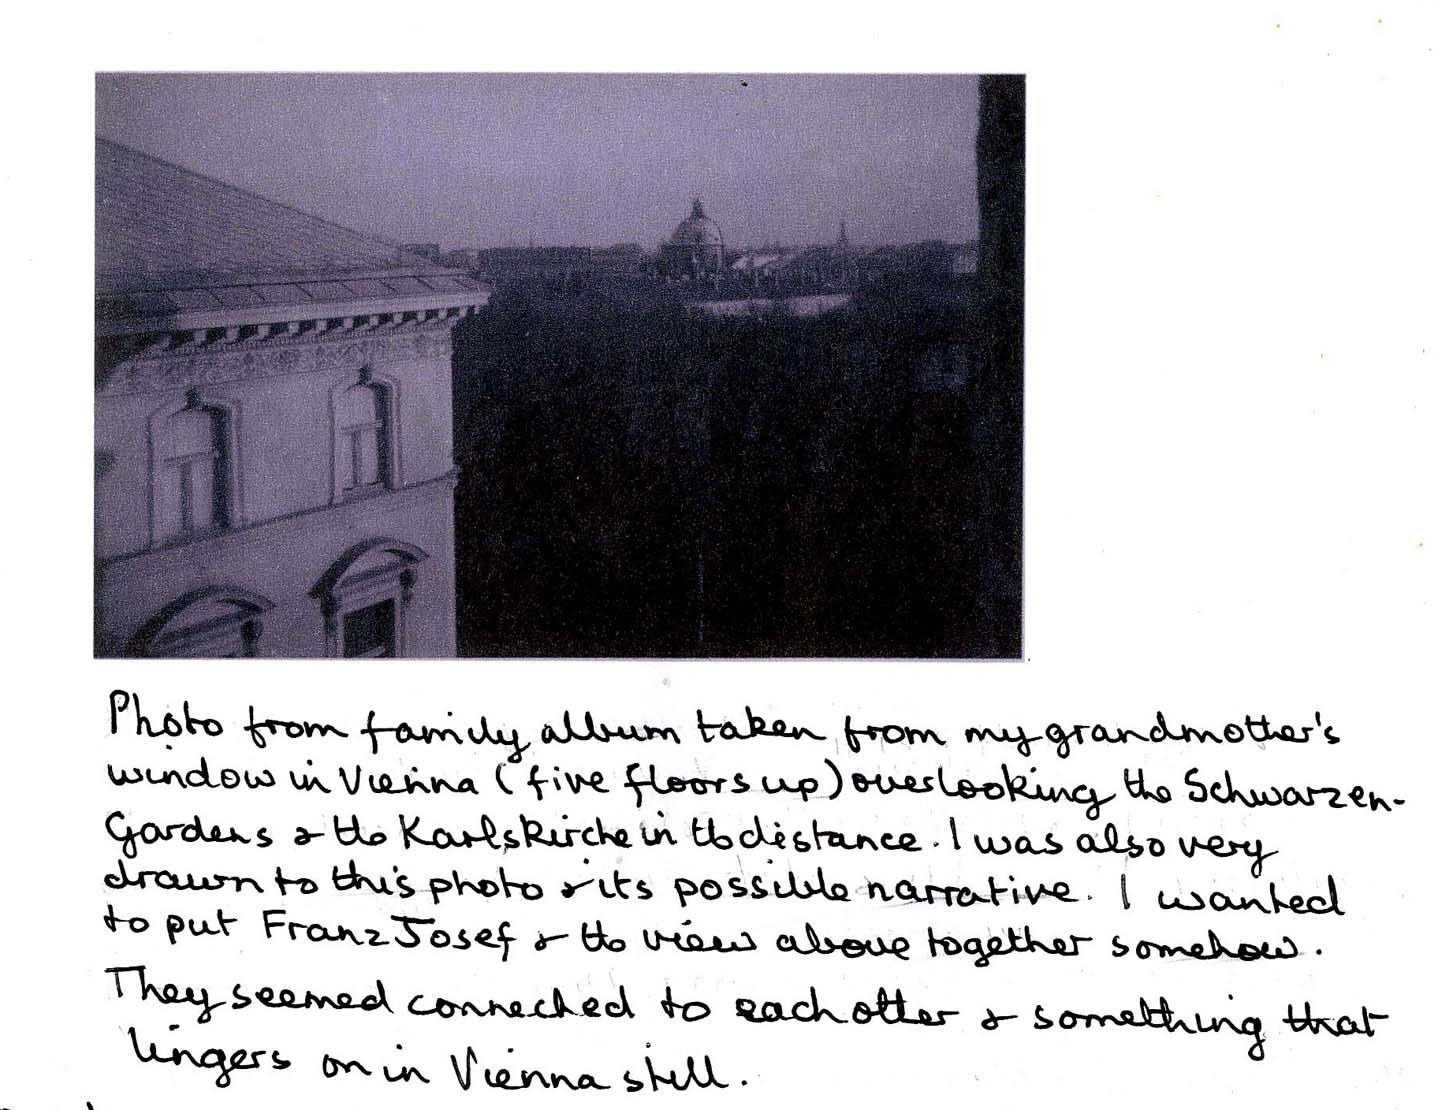 Photo from family album taken from my grandmother's
window in Vienna (five floors up) overlooking the Schwarzen-
Gardens & the Karlskirche in the distance. I was also very
drawn to this photo & its possible narrative. I wanted
to put Franz Josef & the view above together somehow.
They seemed connected to each other & something that
lingers on in Vienna still.